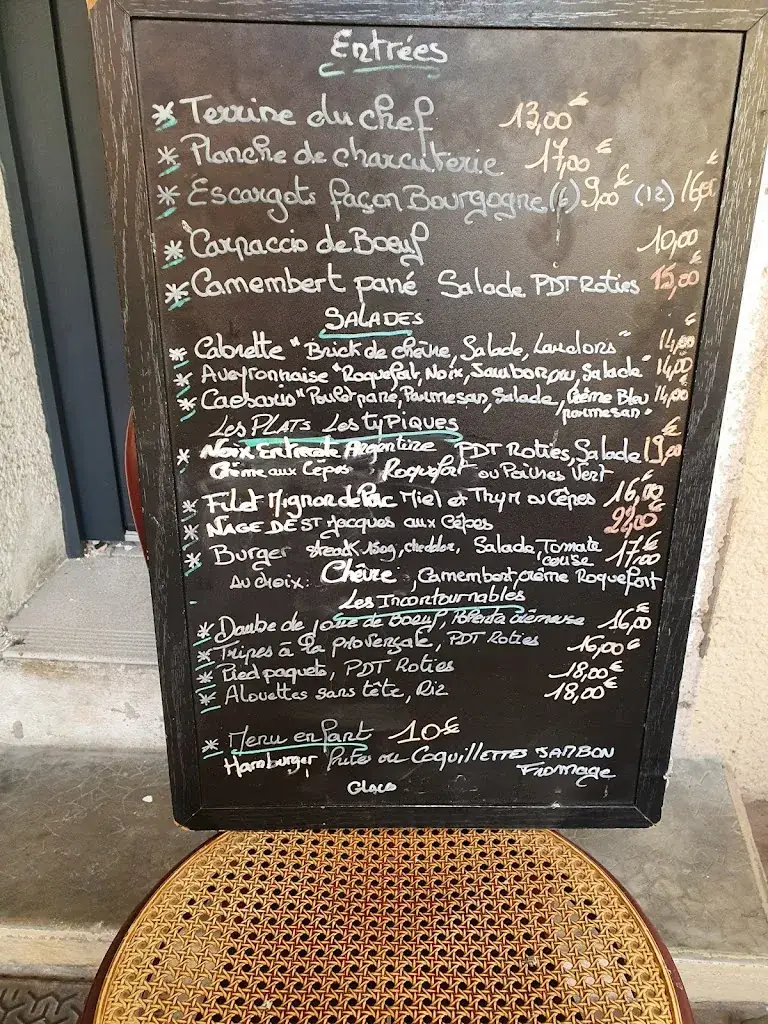 Entrées
* Terrine du chef 13,00€
* Planche de charcuterie 17,00€
* Escargots façon Bourgogne (6) 9,00€ (12) 16,00€
* Carpaccio de Boeuf 10,00
* Camembert pané Salade PDT Roties 15,00€
SALADES
* Cabrette "Brick de chèvre, Salade, Lardons" 14,00€
* Aveyronnaise "Roquefort, Noix, Jambon cru, Salade" 14,00
* Caesario "Poulet pané, Parmesan, Salade, Crème Bleu 14,00
parmesan"
Les PLATS Les tyPiques
* Noix Entrecote Argentine PDT Roties, Salade 19,00€
Crème aux Cèpes Roquefort ou Poivres Vert
* Filet Mignon de Porc Miel et Thym ou Cèpes 16,00€
* NAGE DE ST Jacques aux Cèpes 22,00€
* Burger steack 150g, cheddar, Salade, Tomate 17,00€
Au choix: Chèvre, Camembert, crème Roquefort
Les Incontournables
* Daube de joue de Boeuf, Polenta crémeuse 16,00€
* Tripes à la provençale, PDT Roties 16,00€
* Pied paquets, PDT Roties 18,00€
* Alouettes sans tête, Riz 18,00€
* Menu enfant 10€
Hamburger frites ou Coquillettes JAMBON
Fromage
Glace